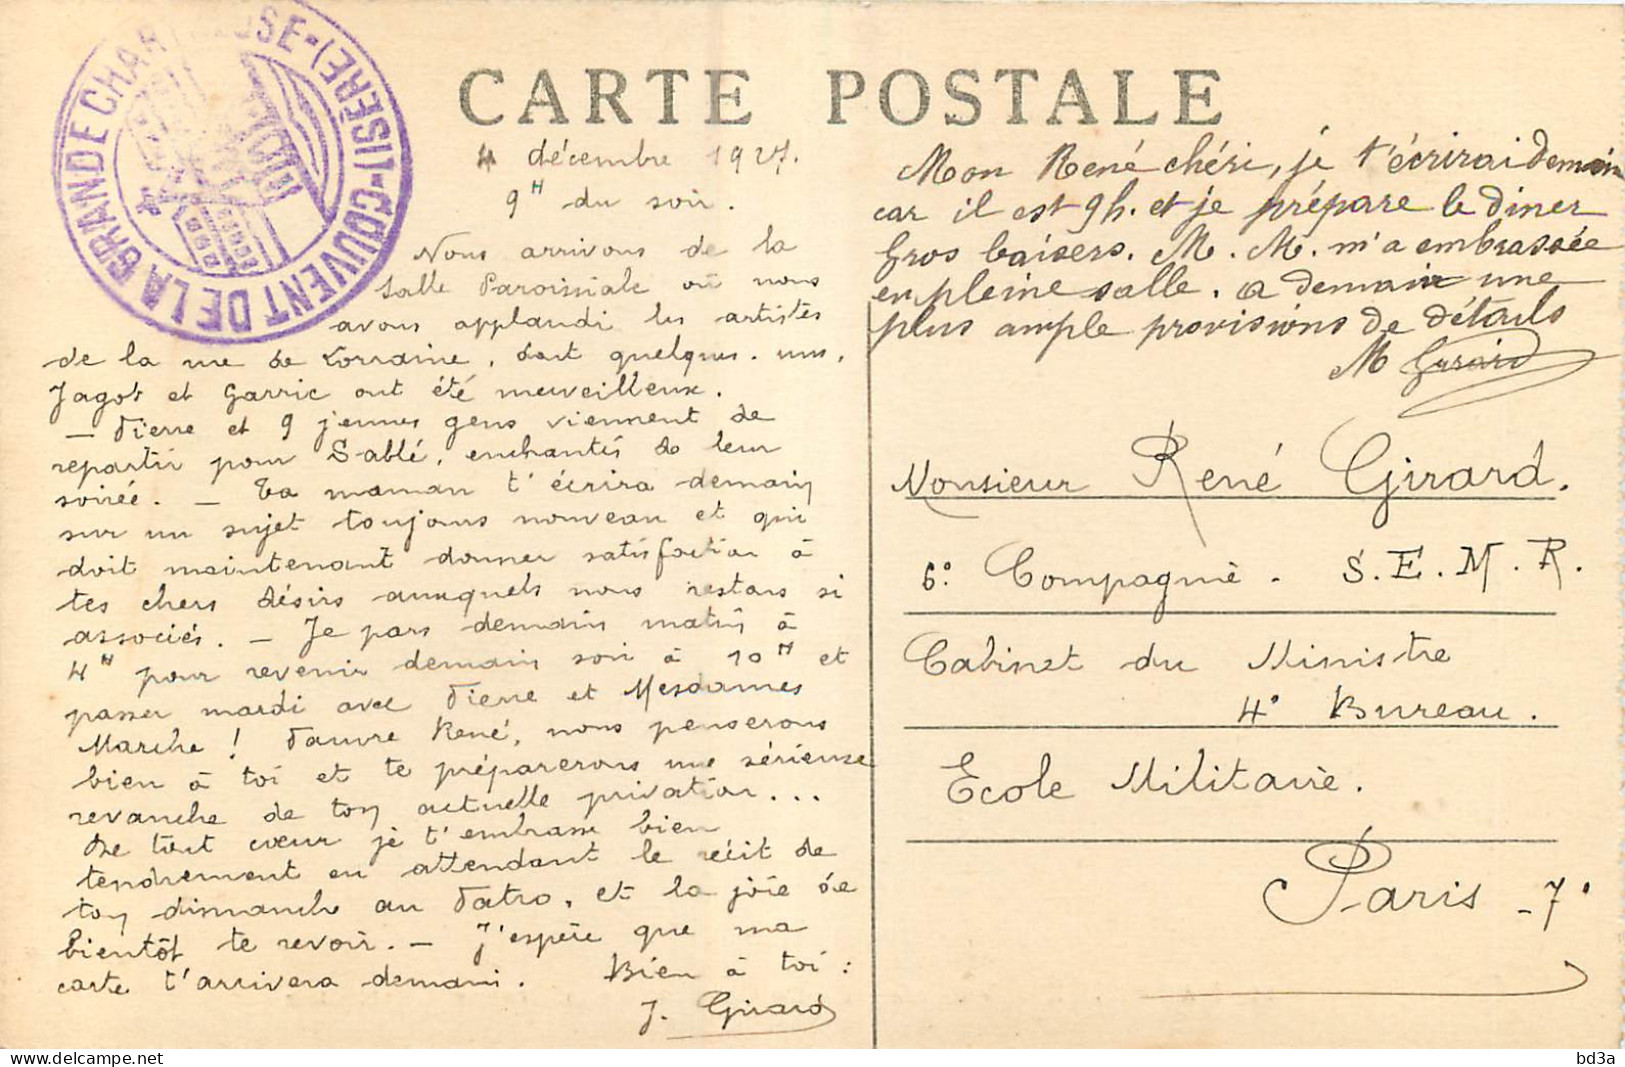 COUVENT DE LA GRANDE CHARTREUSE - (ISÈRE) -
CARTE POSTALE
4 décembre 1927.
9H du soir.
Nous arrivons de la
salle Paroissiale où nous
avons applaudi les artistes
de la rue de Lorraine, dont quelques-uns,
Jagot et Garric ont été merveilleux.
— Pierre et 9 jeunes gens viennent de
repartir pour Sablé, enchantés de leur
soirée. — Ta maman t'écrira demain
sur un sujet toujours nouveau et qui
doit maintenant donner satisfaction à
tes chers désirs auxquels nous restons si
associés. — Je pars demain matin à
4H pour revenir demain soir à 10H et
passer mardi avec Pierre et Mesdames
Marche ! Pauvre René, nous penserons
bien à toi et te préparerons une sérieuse
revanche de ton actuelle privation...
De tout cœur je t'embrasse bien
tendrement en attendant le récit de
ton dimanche au Patro, et la joie de
bientôt te revoir. — J'espère que ma
carte t'arrivera demain. Bien à toi :
J. Girard
Mon René chéri, je t'écrirai demain
car il est 9h. et je prépare le diner
Gros baisers. M. M. m'a embrassée
en pleine salle. a demain une
plus ample provisions de détails
M Girard
Monsieur René Girard.
6e Compagnie. S.E.M.R.
Cabinet du Ministre
4e Bureau.
Ecole Militaire.
Paris - 7e
delcampe.net
bd3a